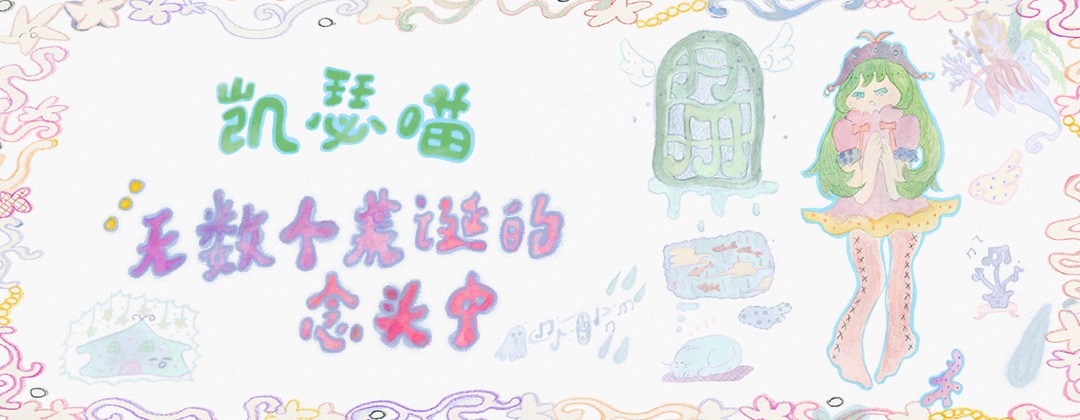 凯瑟喵
无数个荒诞的
念头中